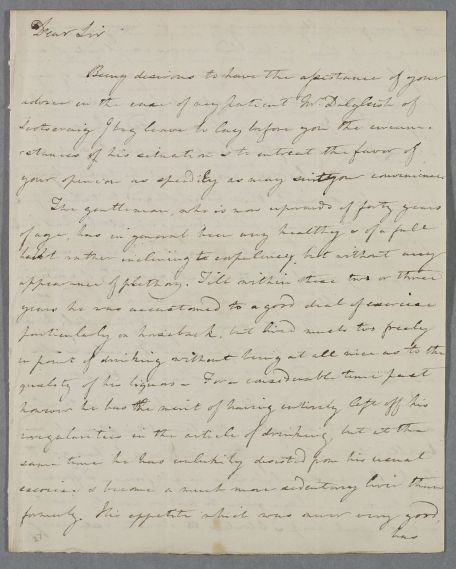 Dear Sir
Being desirous to have the assistance of your
advice in the case of my patient Mr. Dalgleish of
Scotscraig I beg leave to lay before you the circum-
stances of his situation & to entreat the favor of
your opinion as speedily as may suit your convenience
The gentleman, who is now upwards of forty years
of age, has in general been very healthy & of a full
habit rather inclining to corpulency, but without any
appearance of plethory. Till within these two or three
years he was accustomed to a good deal of exercise
particularly on horseback, but lived much too freely
in point of drinking without being at all nice as to the
quality of his liquors – For a considerable time past
however he has the merit of having entirely left off his
irregularities in the article of drinking but at the
same time he has unluckily desisted from his usual
exercise & become a much more sedentary liver than
formerly. His appetite which was never very good,
has